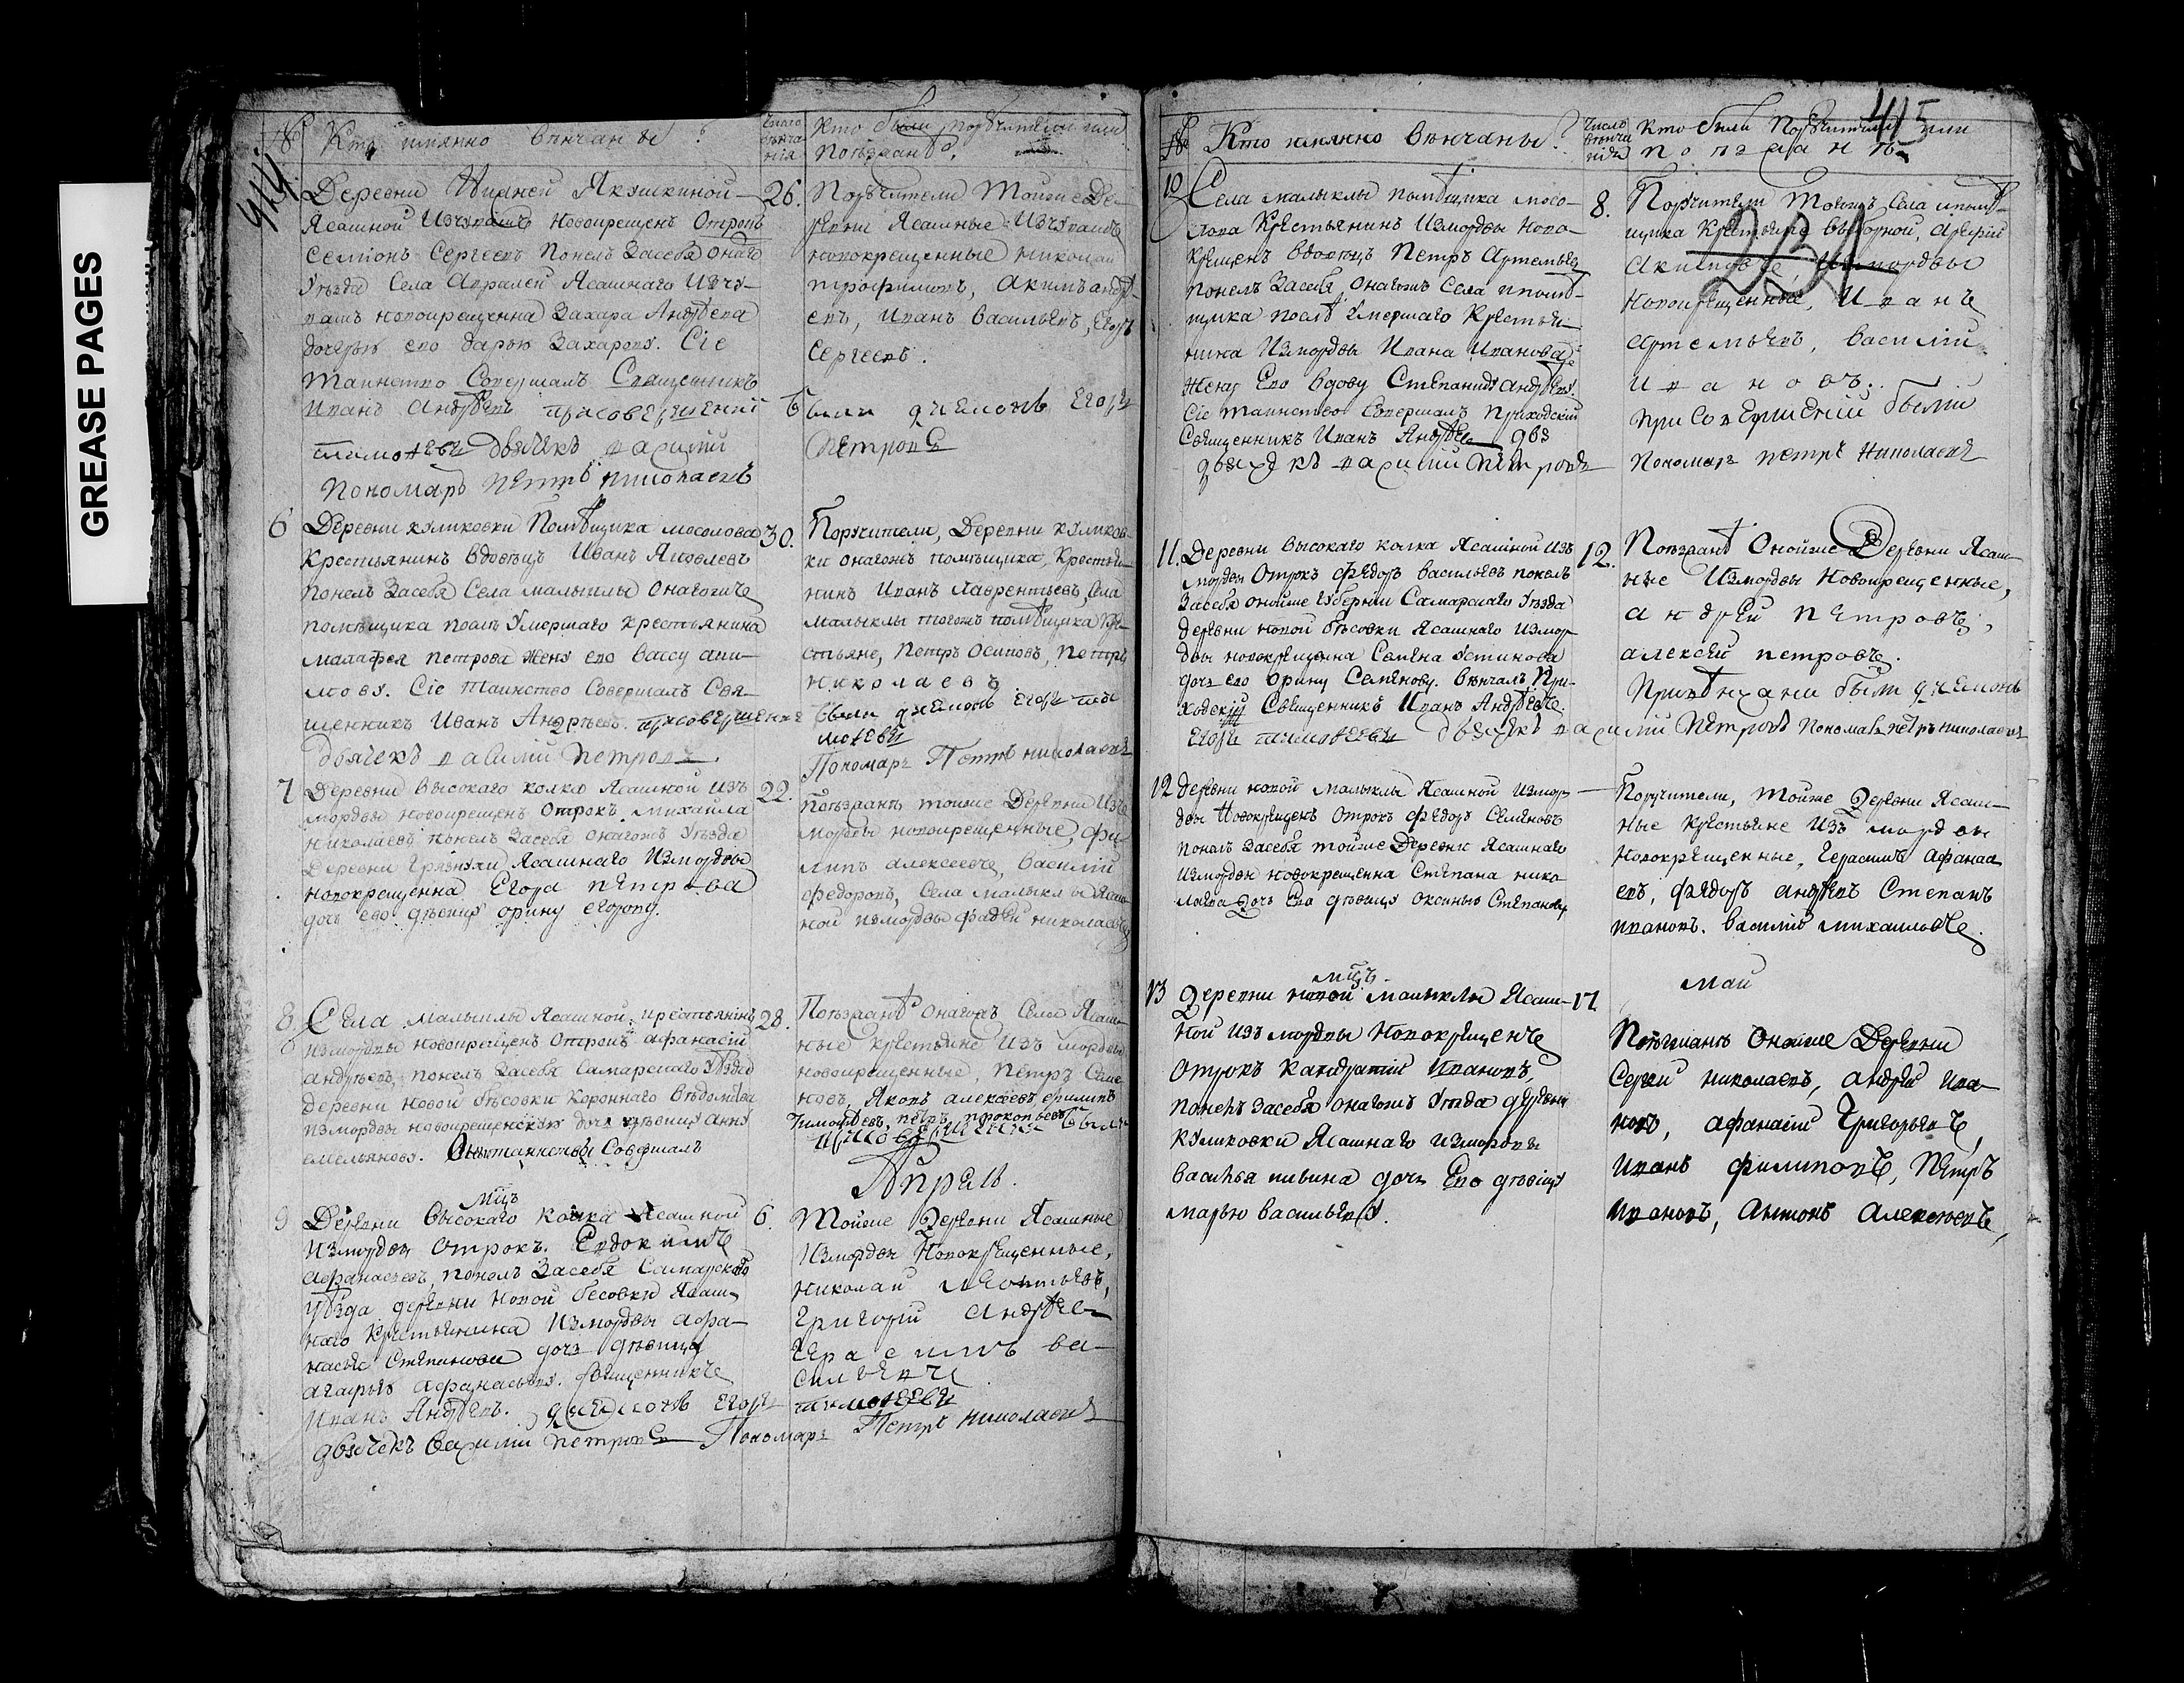 GREASE PAGES
414.
№
Кто имянно венчаны?
Число венча нія
Кто были поручители или
поезжанѣ.
Деревни Нижней Якушкиной
Ясашной Изчувашъ новокрещенъ Отрокъ
Семіонъ Сергеевъ Понелъ Засебя онаго
Уезда Села Апралей Ясашнаго Изчу-
вашъ новокрещенна Захара Андреева
дочерью ево дарью Захарову. Сіе
таинство Совершалъ Священникъ
Иванъ Андреевъ присовершеніи
тимофеевъ дьячекъ василий
Пономарь петръ николаевъ
26.
Поручители Тойже Де-
ревни Ясашные Изчувашъ
новокрещенные николай
трофимовъ, акимъ андре-
евъ, иванъ васильевъ, Егоръ
Сергеевъ.
были диаконъ Егоръ
Петровъ
6
Деревни куликовки Помещика мосолова
крестьянинъ вдовецъ Иванъ Яковлевъ
понелъ Засебя Села малыклы онагожъ
помещика послѣ умершаго крестьянина
малафея петрова жену ево вассу аки-
мову. Сіе таинство Совершалъ Свя-
щенникъ Иванъ Андреевъ. присовершеніи
дьячекъ василий петровъ.
30.
Поручители, Деревни куликов-
ки онагожъ помещика, Крестья-
нинъ Иванъ лаврентьевъ, Села
малыклы тогожъ помещика кре-
стьяне, Петръ Осиповъ, петръ
николаевъ
были диаконъ Егоръ тимо
мофеевъ
Пономарь Петръ николаевъ
7
Деревни высокаго колка Ясашной изъ
мордвы новокрещенъ отрокъ михайла
николаевъ понелъ Засебя онагожъ Уезда
деревни Грязнухи Ясашнаго Измордвы
новокрещенна Егора петрова
дочь ево девицу орину егорову.
22.
поезжанѣ тойже Деревни Изъ
мордвы новокрещенные, фи-
липъ алексеевъ, василий
федоровъ, Села малыклы Ясаш-
ной измордвы фадей николаевъ
8
Села малыклы Ясашной крестьянинъ
измордвы новокрещенъ отрокъ афанасій
андреевъ, понелъ Засебя Самарскаго Уезда
деревни новой бесовки Короннаго ведомства
измордвы новокрещенскую дочь девицу анну
емельянову. таинство Совершалъ
28.
Поезжанѣ онагожъ Села Ясаш-
ные крестьяне изъ мордвы
новокрещенные, петръ Семе-
новъ, Яковъ алексеевъ филипъ
Тимофеевъ, петръ прокопьевъ были
присовершеніи
мцъ
Апрель.
9
Деревни высокаго колка Ясашной
измордвы отрокъ. Евдокимъ
афанасьевъ, понелъ Засебя Самарскаго
уезда деревни новой бесовки Ясаш-
наго крестьянина измордвы афа-
насья Степанова дочь девицу
агафью афанасьеву. Священникъ
Иванъ Андреевъ. диаконъ Егоръ
дьячекъ василий петровъ
6.
Тойже Деревни Ясашные
измордвы новокрещенные,
николай леонтьевъ,
Григорій Андреевъ
Герасимъ ва-
сильевъ
тимофеевъ
Пономарь Петръ николаевъ
415
№
Кто имянно венчаны?
Число венча нія
Кто были Поручители или
поезжанѣ
231
10
Села малыклы помещика мосо-
лова Крестьянинъ Измордвы ново-
крещенъ вдовецъ Петръ Артемьевъ
понелъ Засебя, онагожъ Села и поме-
щика послѣ умершаго Крестья-
нина Измордвы Ивана Иванова
жену Ево вдову Степаниду андрееву.
Сіе таинство Совершалъ приходский
Священникъ Иванъ Андреевъ
дьячекъ василий Петровъ
8.
Поручители Тогожъ Села и поме-
щика Крестьяне выборной,
Акимовъ, Измордвы
новокрещенные, Иванъ
артемьевъ, василій
ивановъ.
при Совершеніи были
пономарь петръ николаевъ
11.
Деревни высокаго колка Ясашной изъ
мордвы Отрокъ федоръ васильевъ понелъ
Засебя онойже губернии Самарскаго Уезда
деревни новой бесовки Ясашнаго измор-
двы новокрещенна Семена Устинова
дочь ево орину Семенову. венчалъ При-
ходскій Священникъ Иванъ Андреевъ.
Егоръ тимофеевъ дьячекъ василий Петровъ Пономарь петръ николаевъ
12.
Поезжанѣ Онойже Деревни Ясаш-
ные Измордвы Новокрещенные,
андрей петровъ,
алексей петровъ.
Привенчани были диаконъ
12
Деревни новой малыклы Ясашной измор-
двы Новокрещенъ отрокъ федоръ Семеновъ
понелъ засебя тойже деревни Ясашнаго
измордвы новокрещенна Степана нико-
лаева дочь Ево девицу оксинью Степанову
Поручители, тойже Деревни Ясаш-
ные крестьяне Изъ мордвы
новокрещенные, герасимъ афанась-
евъ, федоръ андреевъ Степанъ
ивановъ. василий михайловъ.
мцъ.
май
13
Деревни новой малыклы Ясаш-
ной изъ мордвы Новокрещенъ
отрокъ кандратій ивановъ,
понелъ засебя онагожъ Уезда деревни
куликовки Ясашнаго измордвы
василья пивина дочь Ево девицу
марью васильеву.
17
Поезжанѣ Онойже Деревни
Сергей николаевъ, андрей ива-
новъ, афанасій Григорьевъ,
иванъ филиповъ, Петръ
ивановъ, антонъ Алексеевъ,